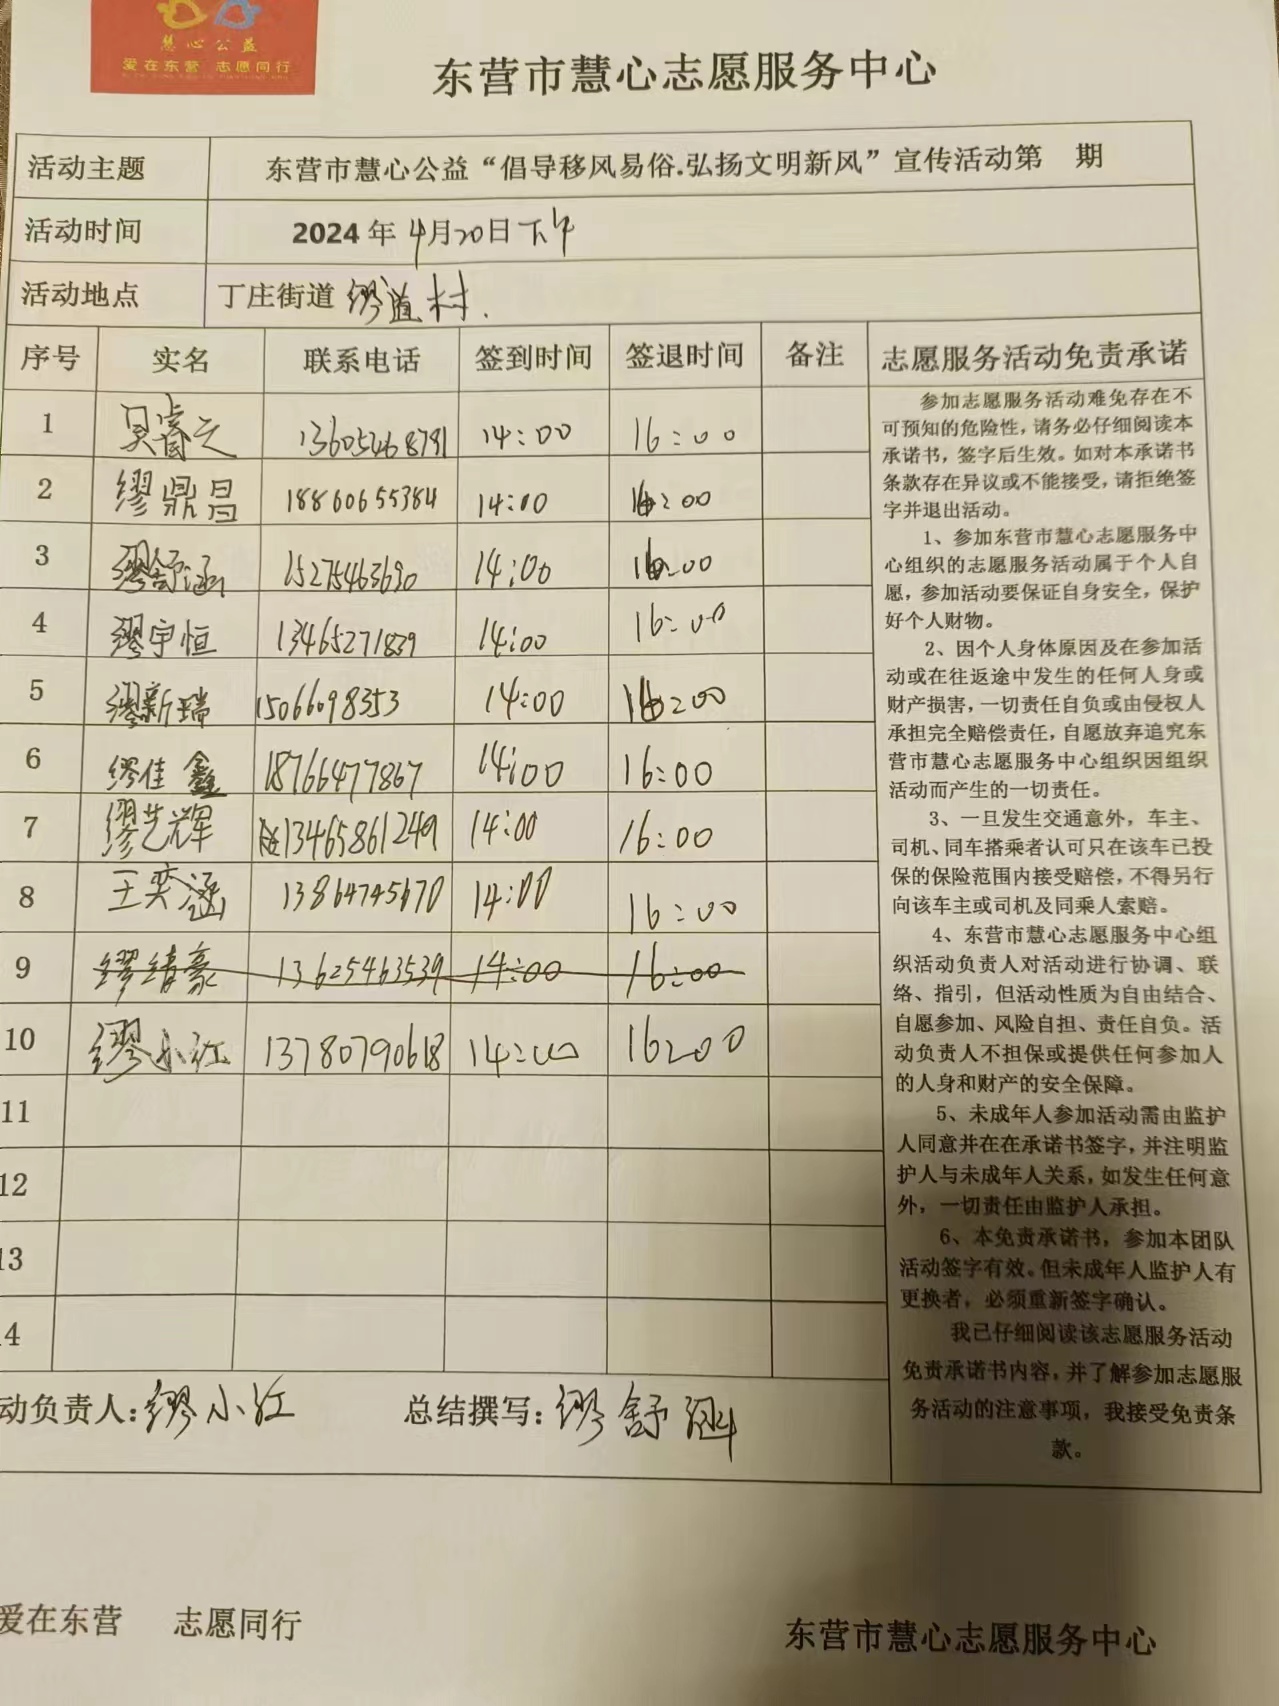 慧心公益
爱在东营 志愿同行
东营市慧心志愿服务中心
活动主题 东营市慧心公益“倡导移风易俗.弘扬文明新风”宣传活动第 期
活动时间 2024年4月20日下午
活动地点 丁庄街道缪道村.
序号 实名 联系电话 签到时间 签退时间 备注 志愿服务活动免责承诺
1 吴睿之 13605468791 14:00 16:00
2 缪鼎昌 18860655384 14:00 16:00
3 缪舒涵 15275463690 14:00 16:00
4 缪宇恒 13465271839 14:00 16:00
5 缪新瑞 15066098353 14:00 16:00
6 缪佳鑫 18766477867 14:00 16:00
7 缪艺辉 13465861249 14:00 16:00
8 王奕涵 13864745670 14:00 16:00
9 缪清豪 13625463539 14:00 16:00
10 缪小红 13780790618 14:00 16:00
11
12
13
14
参加志愿服务活动难免存在不
可预知的危险性，请务必仔细阅读本
承诺书，签字后生效。如对本承诺书
条款存在异议或不能接受，请拒绝签
字并退出活动。
1、参加东营市慧心志愿服务中
心组织的志愿服务活动属于个人自
愿，参加活动要保证自身安全，保护
好个人财物。
2、因个人身体原因及在参加活
动或在往返途中发生的任何人身或
财产损害，一切责任自负或由侵权人
承担完全赔偿责任，自愿放弃追究东
营市慧心志愿服务中心组织因组织
活动而产生的一切责任。
3、一旦发生交通意外，车主、
司机、同车搭乘者认可只在该车已投
保的保险范围内接受赔偿，不得另行
向该车主或司机及同乘人索赔。
4、东营市慧心志愿服务中心组
织活动负责人对活动进行协调、联
络、指引，但活动性质为自由结合、
自愿参加、风险自担、责任自负。活
动负责人不担保或提供任何参加人
的人身和财产的安全保障。
5、未成年人参加活动需由监护
人同意并在在承诺书签字，并注明监
护人与未成年人关系，如发生任何意
外，一切责任由监护人承担。
6、本免责承诺书，参加本团队
活动签字有效。但未成年人监护人有
更换者，必须重新签字确认。
我已仔细阅读该志愿服务活动
免责承诺书内容，并了解参加志愿服
务活动的注意事项，我接受免责条
款。
动负责人：缪小红 总结撰写：缪舒涵
爱在东营 志愿同行
东营市慧心志愿服务中心